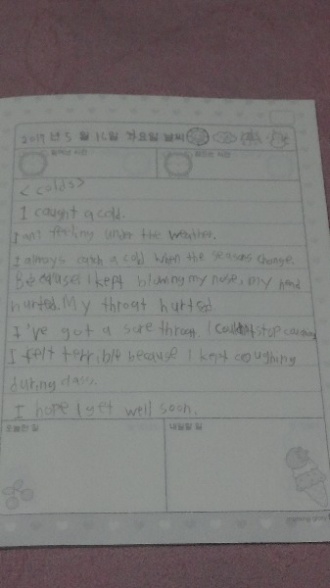 2019 년 5 월 16일 요일 날씨
<colds>
I caught a cold.
I am feeling under the weather.
I always catch a cold when the seasons change.
Because I kept blowing my nose, my
hurted. My throat hurted.
I've got a sore throat. I couldn't stop
I felt terrible because I kept coughing
during class.
I hope I get well soon.